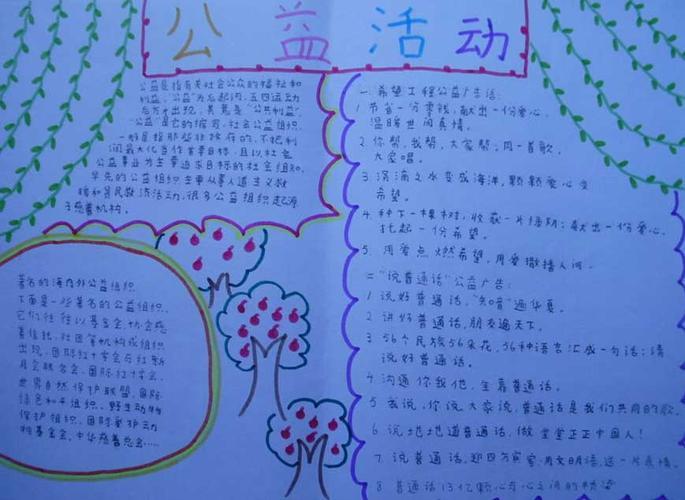 公益活动
公益是指有关社会公众的福祉和
利益。"公益"为后起词，五四运动
后方才出现，其意是"公共利益"，
"公益"是它的缩写。社会公益组织，
一般是指那些非政府的，不把利
润最大化当作首要目标，且以社会
公益事业为主要追求目标的社会组织。
早先的公益组织主要从事人道主义救
援和贫民救济活动，很多公益组织起源
于慈善机构。
著名的海内外公益组织
下面是一些著名的公益组织，
它们往往以基金会、协会、慈
善信托、社团等机构或组织
出现，国际红十字会与红新
月会联合会、国际红十字会、
世界自然保护联盟、国际
绿色和平组织、野生动物
保护组织、国际爱护动
物基金会、中华慈善总会……
一、希望工程公益广告语：
1、节省一分零钱，献出一份爱心，
温暖世间真情。
2、你帮，我帮，大家帮；同一首歌，
大爱唱。
3、涓滴之水变成海洋，颗颗爱心变
希望。
4、种下一棵树，收获一片绿荫；献出一份爱心，
托起一份希望。
5、用爱点燃希望，用爱撒播人间。
二、"说普通话"公益广告：
1、说好普通话，"知音"遍华夏。
2、讲好普通话，朋友遍天下。
3、56个民族56朵花，56种语言汇成一句话：请
说好普通话。
4、沟通你我他，全靠普通话。
5、我说，你说，大家说，普通话是我们共同的歌。
6、说地地道道普通话，做堂堂正正中国人！
7、说普通话，迎四方宾客；用文明语，送一片真情。
8、普通话13亿颗心与心之间的桥梁